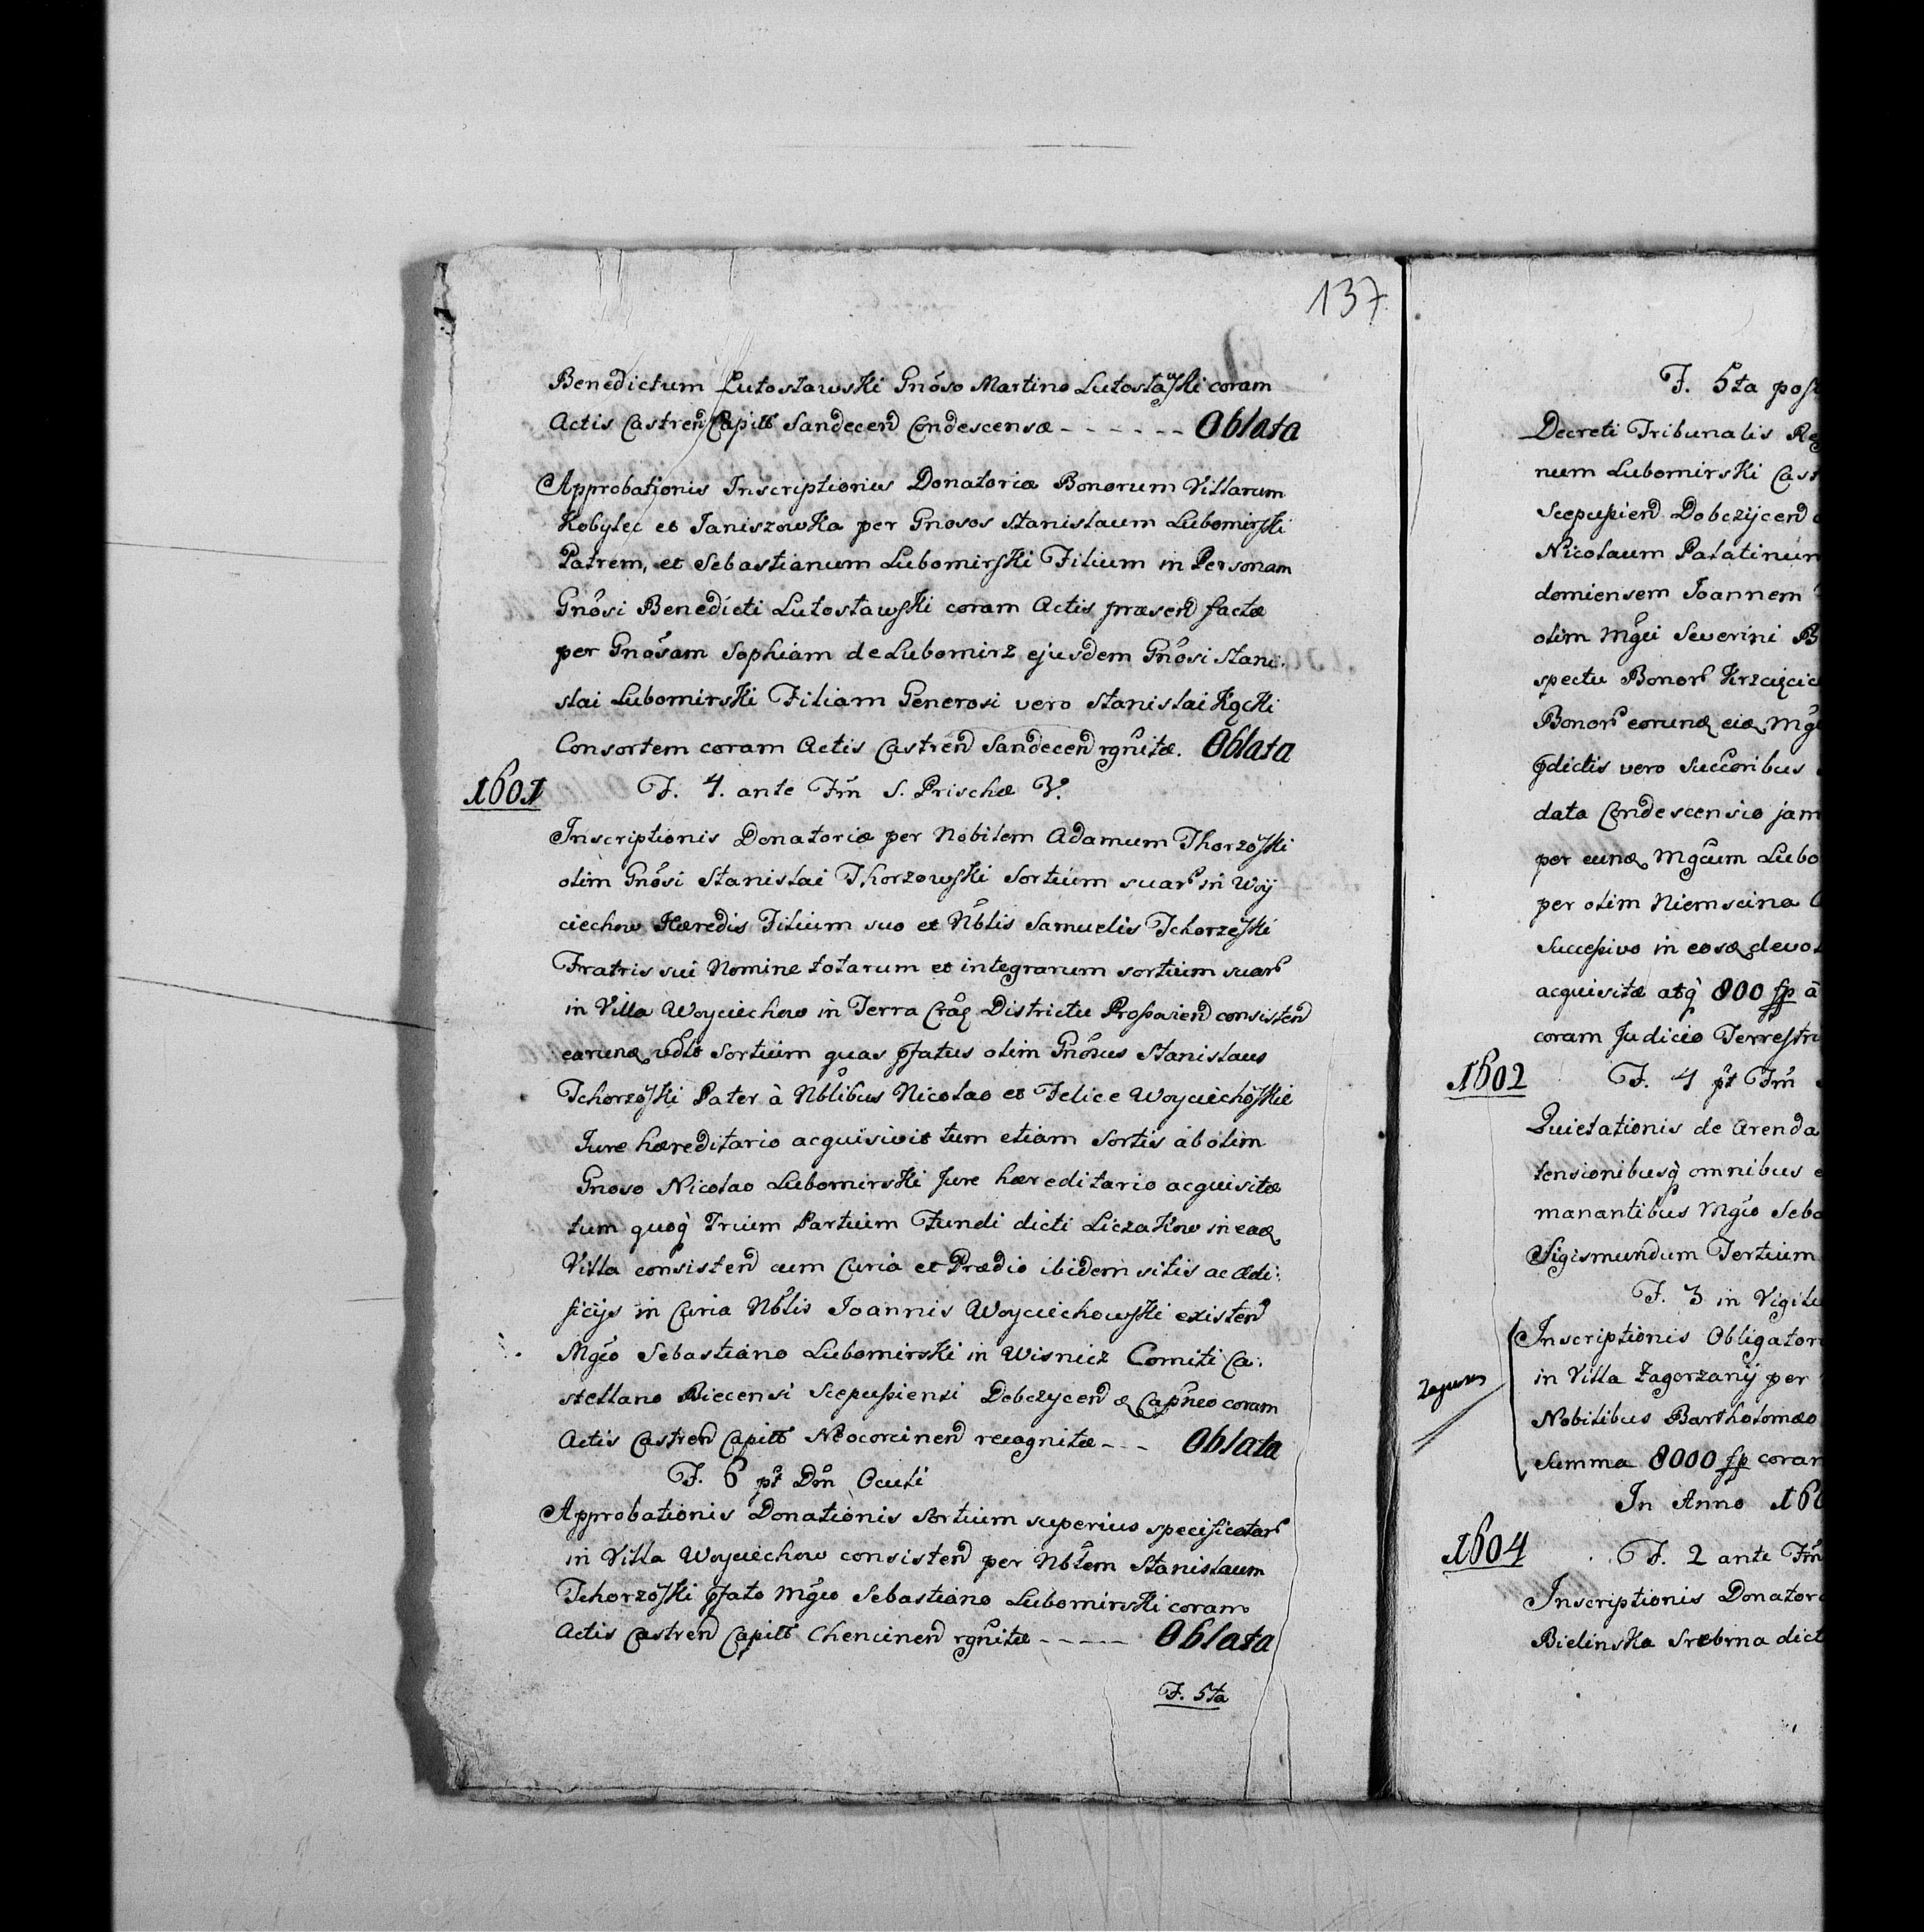 137
Benedictum Lutosławski Gnoso Martino Lutostawski coram
Actis Castren Capitt Sandecen Condescensæ - - - - - - Oblata
Approbationis Inscriptionis Donatoriæ Bonorum Villarum
Kobylec et Janiszowka per Gnosos Stanislaum Lubomirski
Patrem, et Sebastianum Lubomirski Filium in Personam
Gnosi Benedicti Lutostawski coram Actis præsen factæ
per Gnosam Sophiam de Lubomirz ejusdem Gnosi Stani:
slai Lubomirski Filiam Generosi vero Stanislai Kącki
Consortem coram Actis Castren Sandecen rgnitæ. Oblata
1601 F. 4. ante Fm S. Prischæ V.
Inscriptionis Donatoriæ per Nobilem Adamum Thorzoski
olim Gnosi Stanislai Thorzowski Sortium suar in Woy
ciechow Hæredis Filium suo et Nblis Samuelis Tchorzeski
Fratris sui Nomine totarum et integrarum sortium suar
in Villa Woyciechow in Terra Crac Districtu Proszovien consisten
earunq udt Sortium quas pfatus olim Gnosus Stanislaus
Tchorzoski Pater à Nblibus Nicolao et Felice Woyciechoskie
Jure hæreditario acquisivit tum etiam Sortis ab olim
Gnoso Nicolao Lubomirski Jure hæreditario acquisitæ
tum quoq Trium Partium Fundi dicti Liczakow in eaq
Villa consisten cum Curia et Prædio ibidem sitis ac Ædi:
ficijs in Curia Nblis Joannis Woyciechowski existen
Mgco Sebastiano Lubomirski in Wisnicz Comiti Ca:
stellano Biecensi Scepusiensi Dobczycen & Capneo coram
Actis Castren Capitt Neocorcinen recognitæ - - - Oblata
F. 6 pt Dm Oculi
Approbationis Donationis Sortium superius specificatar
in Villa Woyciechow consisten per Nblem Stanislaum
Tchorzoski pfato Mgco Sebastiano Lubomirski coram
Actis Castren Capitt Chencinen rgnitæ - - - - - Oblata
F. 5ta
F. 5ta post
Decreti Tribunalis Reg
num Lubomirski Cast
Scepusien Dobczycen
Nicolaum Palatinum
domiensem Joannem
olim Mgci Severini B
spectu Bonor Krzcięcic
Bonor eorunq eiæ Mg
pdictis vero Succoribus
data Condescensio jam
per eunq Mgcum Lubo
per olim Niemscina
Successivo in eosq devol
acquisitæ atq 800 fp à
coram Judicio Terrestri
1602 F. 4 pt Fm
Quietationis de Arenda
tensionibusq omnibus e
manantibus Mgco Seba
Sigismundum Tertium
F. 3 in Vigilia
Inscriptionis Obligatori
in Villa Zagorzany per
Nobilibus Bartholomæo
Summa 8000 fp coram
In Anno 160
1604 F. 2 ante Fm
Inscriptionis Donatori
Bielinska Srebrna dict